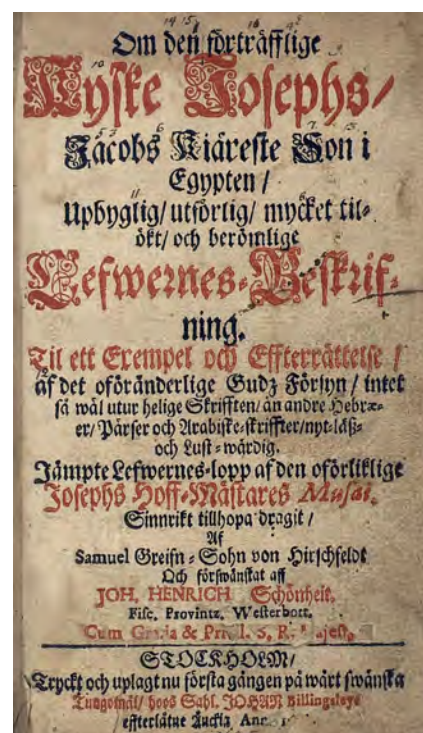 Om den förträfflige
Kyske Josephs/
Jacobs Kiäreste Son i
Egypten /
Upbyglig/ utförlig/ mycket til-
ökt/ och berömlige
Lefwernes-Beskrif-
ning.
Til ett Exempel och Effterrättelse /
af det oföränderlige Gudz Försyn / intet
så wäl utur helige Skrifften/ än andre Hebræ-
er/ Pärser och Arabiske-skriffter/ nyt-läß-
och Lust-wärdig.
Jämpte Lefwernes-lopp af den oförliklige
Josephs Hoff-Mästares Musai.
Sinnrikt tillhopa dragit /
Af
Samuel Greifn-Sohn von Hirschfeldt
Och förswänskat aff
JOH. HENRICH Schönheit,
Fisc. Provintz. Westerbott.
Cum &
STOCKHOLM/
Tryckt och uplagt nu första gången på wårt swänska
Tungomål/ hoos Sahl. JOHAN Billingsleys
effterlåtne Änckia